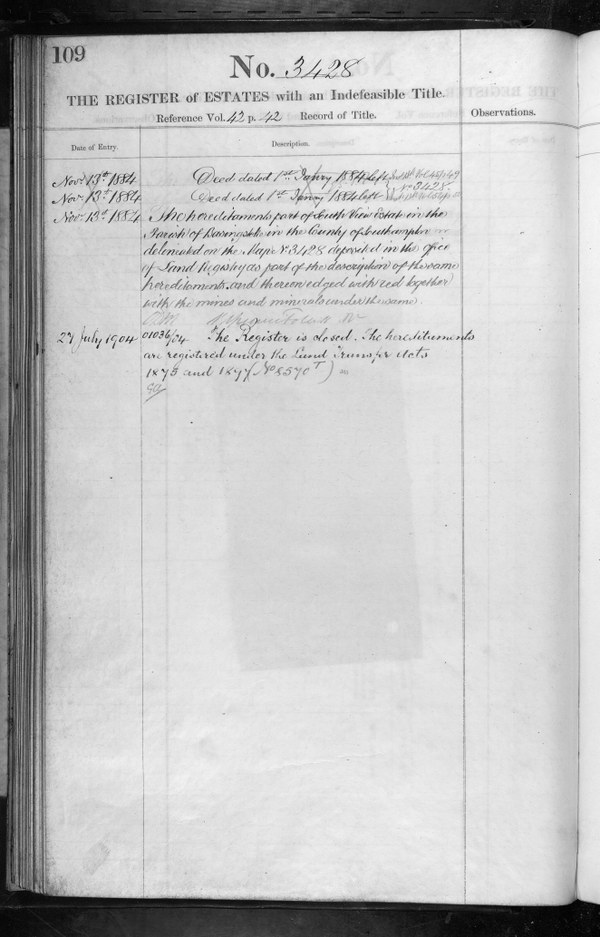 109
No. 3428
THE REGISTER of ESTATES with an Indefeasible Title.
Reference Vol. 42 p. 42 Record of Title.
Observations.
Date of Entry.
Description.
Novr. 13th 1884 Deed dated 1st 1884 left
Novr. 13th 1884 Deed dated 1st 1884 left No 3428
Novr. 13th 1884 The hereditaments part of South View Estate in the
Parish of Basingstoke in the County of Southampton
delineated on the Map No 3428 deposited in the office
of Land Registry as part of the description of the same
hereditaments and thereon edged with red together
with the mines and minerals under the same.
27 July 1904 01036/04 The Register is closed. The hereditaments
are registered under the Land Transfer Acts
1875 and 1897 (No 8570 T)